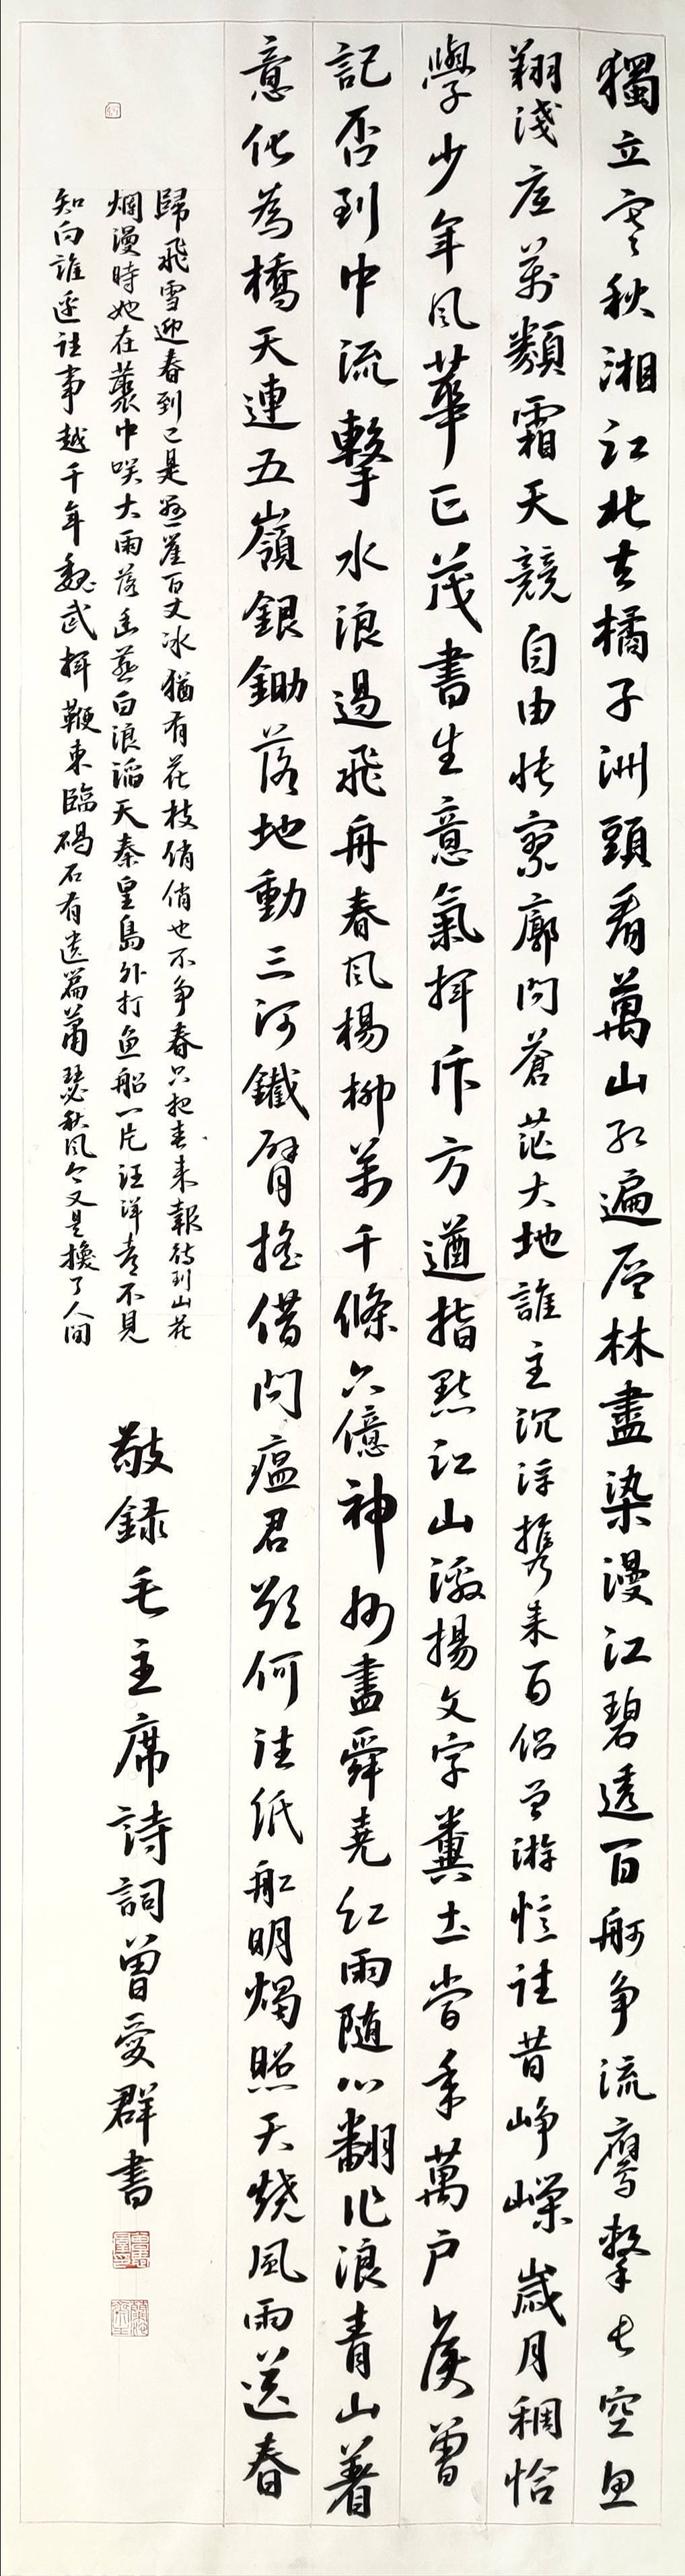 獨立寒秋湘江北去橘子洲頭看萬山紅遍層林盡染漫江碧透百舸争流鷹擊長空魚
翔淺底萬類霜天競自由悵寥廓問蒼茫大地誰主沉浮攜來百侣曾游憶往昔崢嶸歲月稠恰
學少年風華正茂書生意氣揮斥方遒指點江山激揚文字糞土當年萬户侯曾
記否到中流擊水浪遏飛舟春風楊柳萬千條六億神州盡舜堯紅雨随心翻作浪青山著
意化為橋天連五嶺銀鋤落地動三河鐵臂摇借問瘟君欲何往纸船明燭照天燒風雨送春
歸飛雪迎春到已是懸崖百丈冰猶有花枝俏俏也不争春只把春来報待到山花
爛漫時她在叢中咲大雨落幽燕白浪滔天秦皇島外打魚船一片汪洋都不見
知向誰邊往事越千年魏武揮鞭東臨碣石有遺篇蕭瑟秋風今又是換了人间
敬録毛主席詩詞曾愛群書